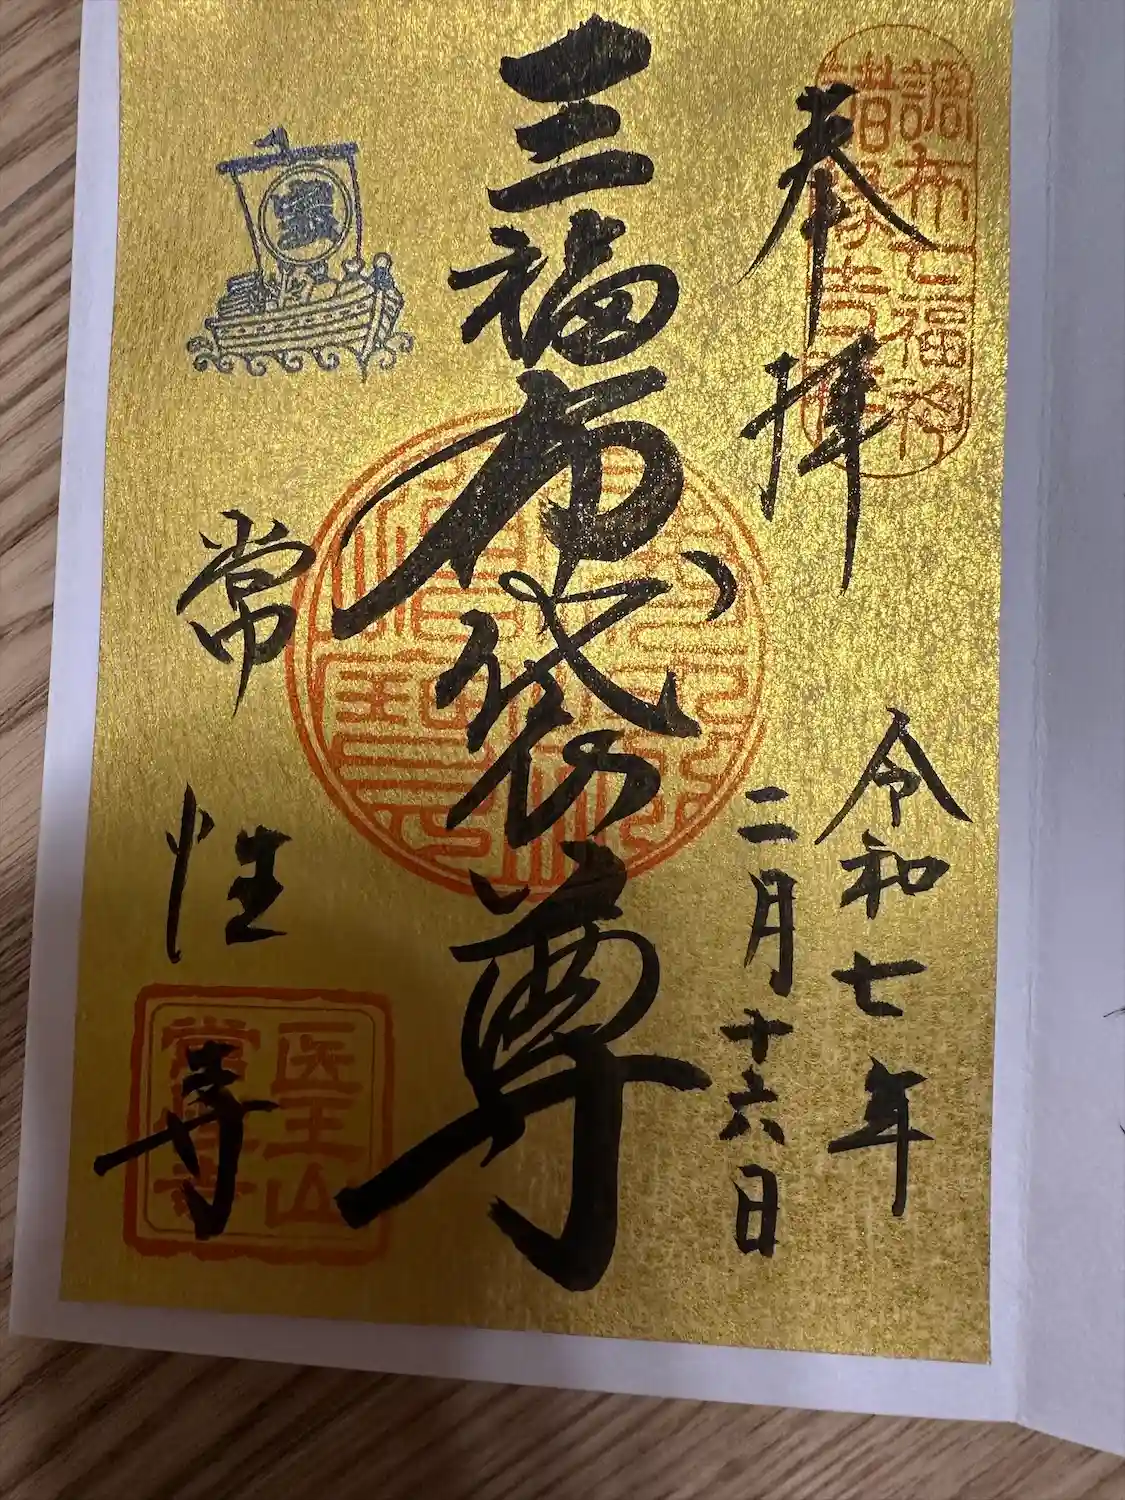 調布七福神
諸縁吉祥
奉拝
令和七年
二月十六日
三福布袋尊
寳
常性寺
医王山
常性寺